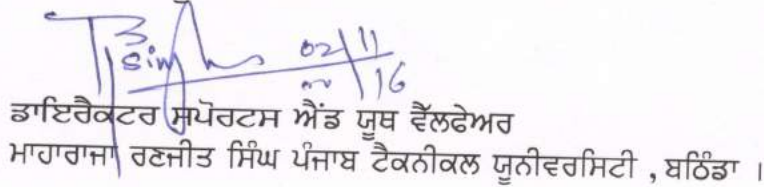 Singh 02/11/16
ਡਾਇਰੈਕਟਰ ਸਪੋਰਟਸ ਐਂਡ ਯੂਥ ਵੈੱਲਫੇਅਰ
ਮਾਹਾਰਾਜਾ ਰਣਜੀਤ ਸਿੰਘ ਪੰਜਾਬ ਟੈਕਨੀਕਲ ਯੂਨੀਵਰਸਿਟੀ , ਬਠਿੰਡਾ ।